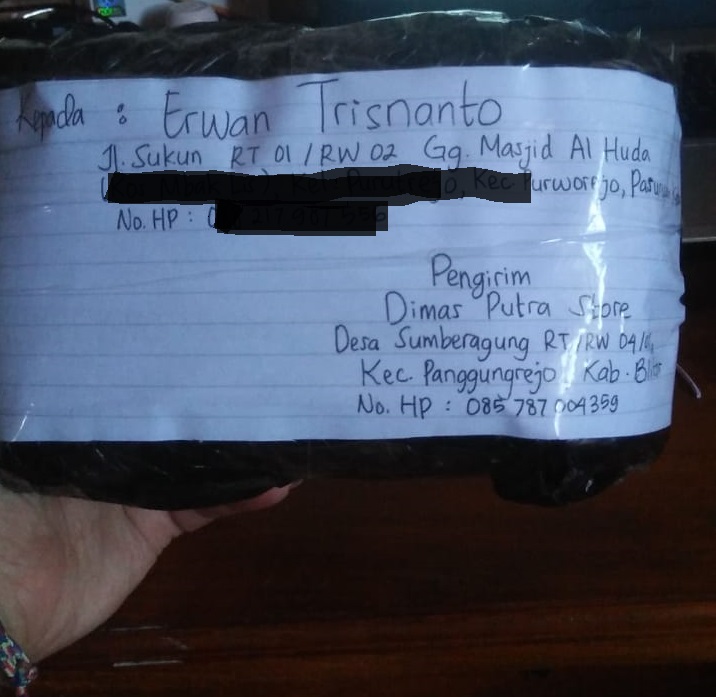 Kepada : Erwan Trisnanto
Jl. Sukun RT 01 / RW 02 Gg. Masjid Al Huda
Kec Purworejo,
No. HP :
Pengirim
Dimas Putra Store
Desa Sumberagung RT/RW 04/
Kec. Panggungrejo Kab. Blitar
No. HP : 085 787 004359